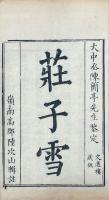 大中丞陳簡亭先生鑒定
莊子雪
文選樓
藏板
嶺南高郵陸次山輯註